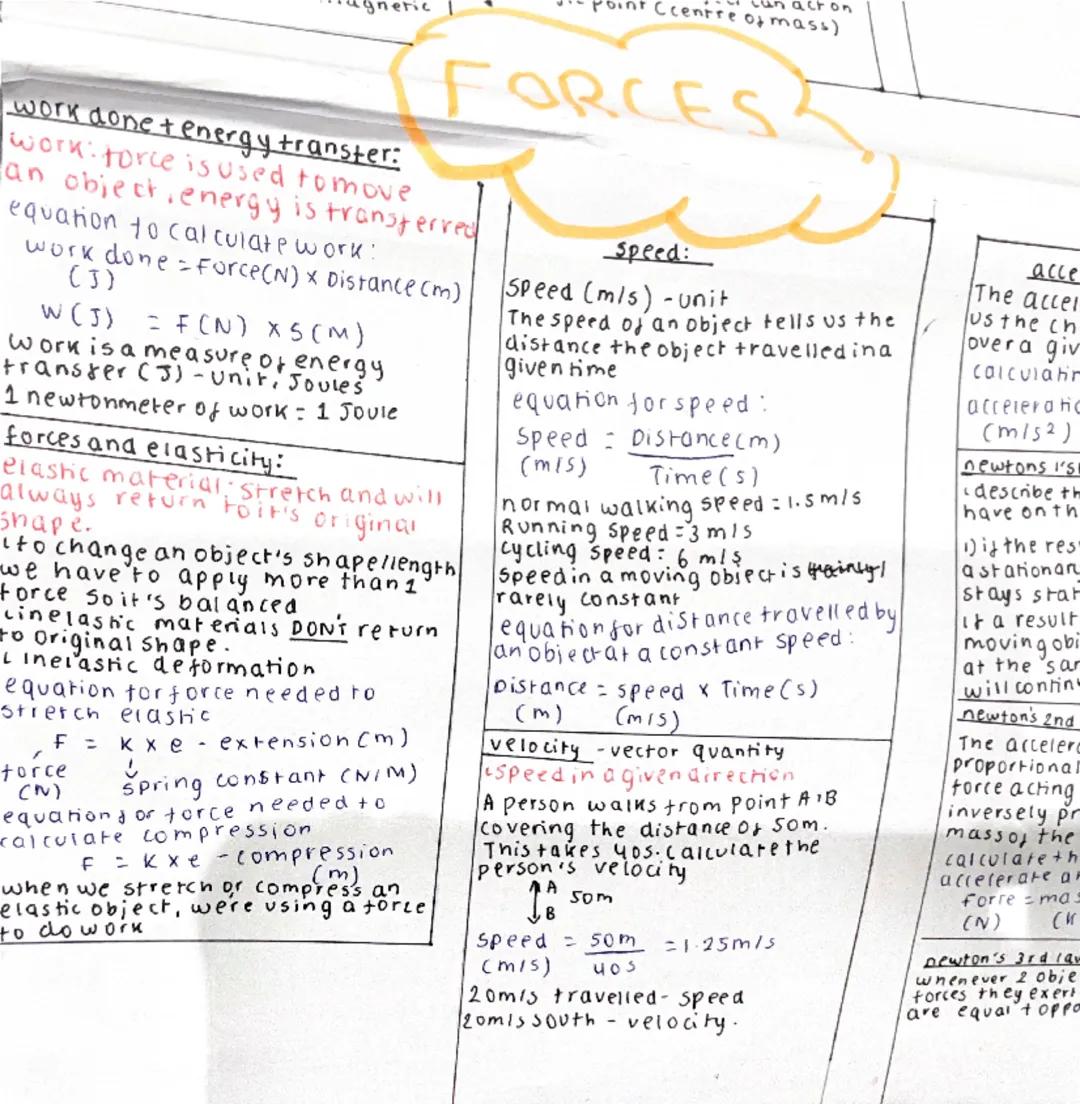 agnetic
can act on
point (centre of mass)
FORCES
work done + energy transfer:
work: force is used to move
an object, energy is transferred
equation to calculate work:
work done = Force(N) x Distance (m)
(J)
W (J) = F (N) x S (M)
Work is a measure of energy
transfer (J) - unit, Joules
1 newtonmeter of work = 1 Joule
forces and elasticity:
elastic material: stretch and will
always return to it's original
shape.
to change an object's shape/length
we have to apply more than 1
force so it's balanced
inelastic materials DON'T return
to original shape.
inelastic deformation
equation for force needed to
stretch elastic
F = K x e - extension (m)
force
(N)
spring constant (N/M)
equation for force needed to
calculate compression
F = K x e - compression
(m)
when we stretch or compress an
elastic object, we're using a force
to do work
speed:
speed (m/s) - unit
The speed of an object tells us the
distance the object travelled in a
given time
equation for speed:
Speed = Distance (m)
(m/s) Time (s)
normal walking speed = 1.5 m/s
Running speed = 3 m/s
cycling speed: 6 m/s
speed in a moving object is mainly/
rarely constant
equation for distance travelled by
an object at a constant speed:
Distance = speed x Time (s)
(m) (m/s)
velocity - vector quantity
speed in a given direction
A person walks from point A, B
covering the distance of 50m.
This takes 40s. Calculate the
person's velocity
A
B
50m
speed = 50m = 1.25m/s
(m/s) 40s
20m/s travelled - speed
20m/s south - velocity.
acce
The accel
us the ch
over a giv
calculatin
acceleratio
(m/s²)
newtons 1's
describe th
have on th
1) if the res
a stationary
stays stat
if a result
moving obj
at the sam
will continu
newton's 2nd
The accelera
proportional
force acting
inversely pr
mass of the
calculate th
accelerate an
force = mas
(N) (K
newton's 3rd law
whenever 2 obje
forces they exert
are equal + oppo